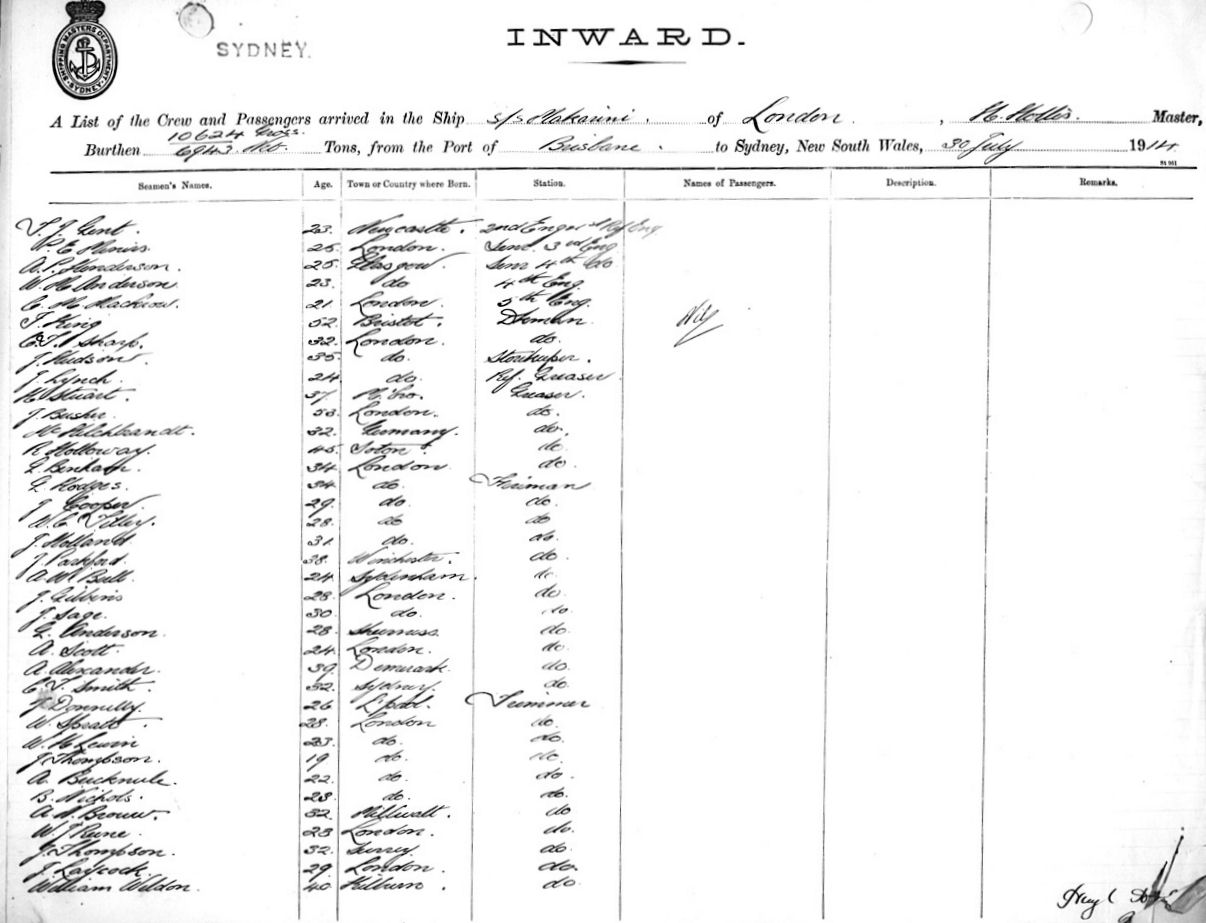 SHIPPING MASTERS DEPARTMENT SYDNEY
SYDNEY.
INWARD.
A List of the Crew and Passengers arrived in the Ship s/s Makarini. of London, H. Hollis. Master,
10624 Gross.
Burthen 6943 Net. Tons, from the Port of Brisbane. to Sydney, New South Wales, 30 July 1914
Seamen's Names. Age. Town or Country where Born. Station. Names of Passengers. Description. Remarks.
Gent. 23. Newcastle. 2nd Ref Eng
P. E. 25. London. 3rd Eng
A. P. Henderson. 25. Glasgow. 4th do
W. H. Anderson 23. do 4th Eng.
C. H. 21. London 5th Eng.
King 52. Bristol.
Sharp. 32. London. do.
J. Hudson. 35. do. Storekeeper.
J. Lynch. 24. do. Ref. Greaser
H. Stuart. 37. Greaser.
J. Busher. 53. London. do.
Hilchbrandt. 32. Germany. do.
R. Holloway. 45. Soton. do
Benham. 34 London do.
Hodges. 34. do. Fireman
J. Cooper. 29. do. do.
W. C. Tilley. 28. do do
J. Holland 31. do. do.
J. Parkford. 38. Winchester. do.
A. W. Bull 24. Sydenham. do.
J. Gibbins 28. London. do.
J. Sage. 30. do. do.
Anderson. 28. Sheerness do.
A. Scott. 24. London. do.
A. Alexander. 39. do.
C. Smith. 32. Sydney. do.
J. Donnelly. 26 L'pool. Trimmer
W. Spratt. 28. London do.
W. H. Lewin 23. do. do.
J. Thompson. 19 do. do.
A. Bucknule. 22. do. do.
B. Nichols. 23. do. do.
A. Brown. 32. Millwall. do
W. J. 23 London. do.
J. Thompson. 32. Surrey. do
J. Laycock. 29. London. do.
William Weldon. 40. Kilburn. do
Nil